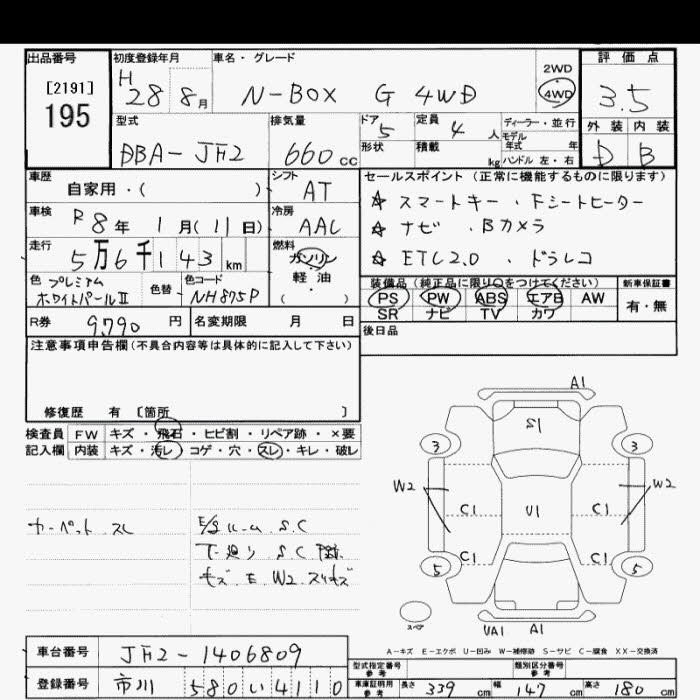 出品番号 初度登録年月 車名・グレード 評価点
[2191] H 28 8月 N-BOX G 4WD 2WD 4WD 3.5
195
型式 排気量 ドア 定員 ディーラー・並行 外装 内装
DBA-JF2 660cc 5 4人 モデル年式 年 D B
形状 積載 kg ハンドル 左・右
車歴 自家用・( ) シフト AT セールスポイント (正常に機能するものに限ります)
車検 R8年 1月(11日) 冷房 AAC ☆ スマートキー・Fシートヒーター
☆ ナビ・Bカメラ
走行 5万6千143km 燃料 ガソリン ☆ ETC2.0・ドラレコ
軽・油
( )
色 プレミアムホワイトパールII 色替 色コード NH875P
装備品(純正品に限り○をつけてください) 新車保証書
PS PW ABS エアB AW 有・無
SR ナビ TV カワ
R券 9,790円 名変期限 月 日 後日品
注意事項申告欄(不具合内容等は具体的に記入して下さい)
修復歴 有 〔箇所 〕
検査員 FW キズ・飛石・ヒビ割・リペア跡・×要
記入欄 内装 キズ・汚レ・コゲ・穴・スレ・キレ・破レ
A1
S1
3 3
W2 W2
C1 U1 C1
C1 C1
5 5
スペア UA1 A1
カーペット スレ
S.C
下廻り S.C
キズ E W2 スリキズ
A-キズ E-エクボ U-凹み W-補修跡 S-サビ C-腐食 XX-交換済
車台番号 JF2-1406809
登録番号 市川 580 い 4110
型式指定番号 参考 類別区分番号 参考
車庫証明用 参考 長さ 339cm 幅 147cm 高さ 180cm